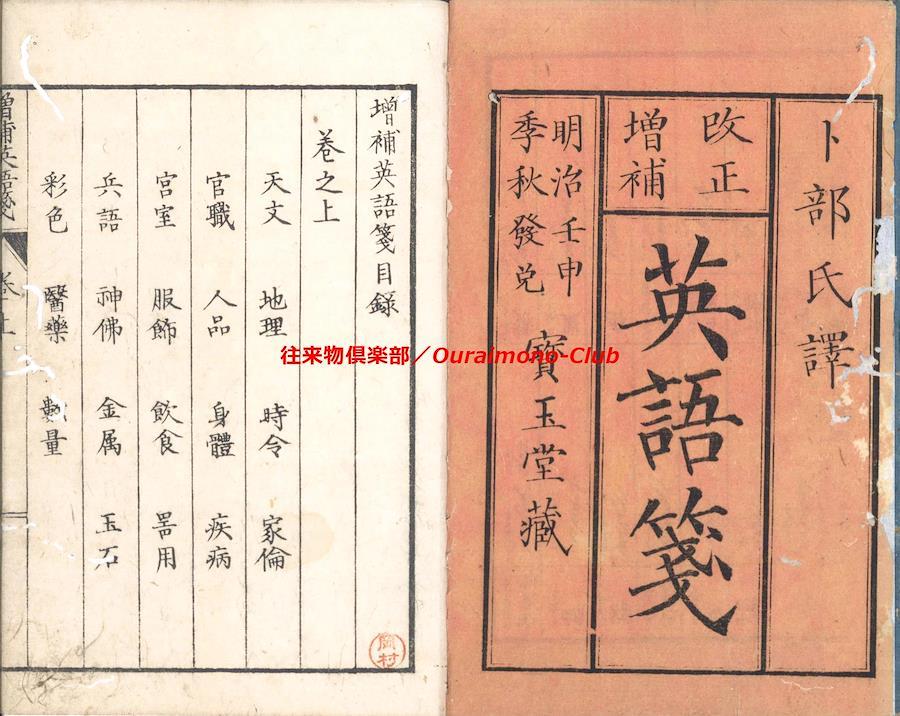 卜部氏譯
改正
増補
英語箋
明治壬申
季秋發兌
寶玉堂藏
増補英語箋目錄
卷之上
天文 地理 時令 家倫
官職 人品 身體 疾病
宮室 服飾 飲食 噐用
兵語 神佛 金属 玉石
彩色 醫藥 數量
増補英語箋
岡村
往来物倶楽部／Ouraimono-Club